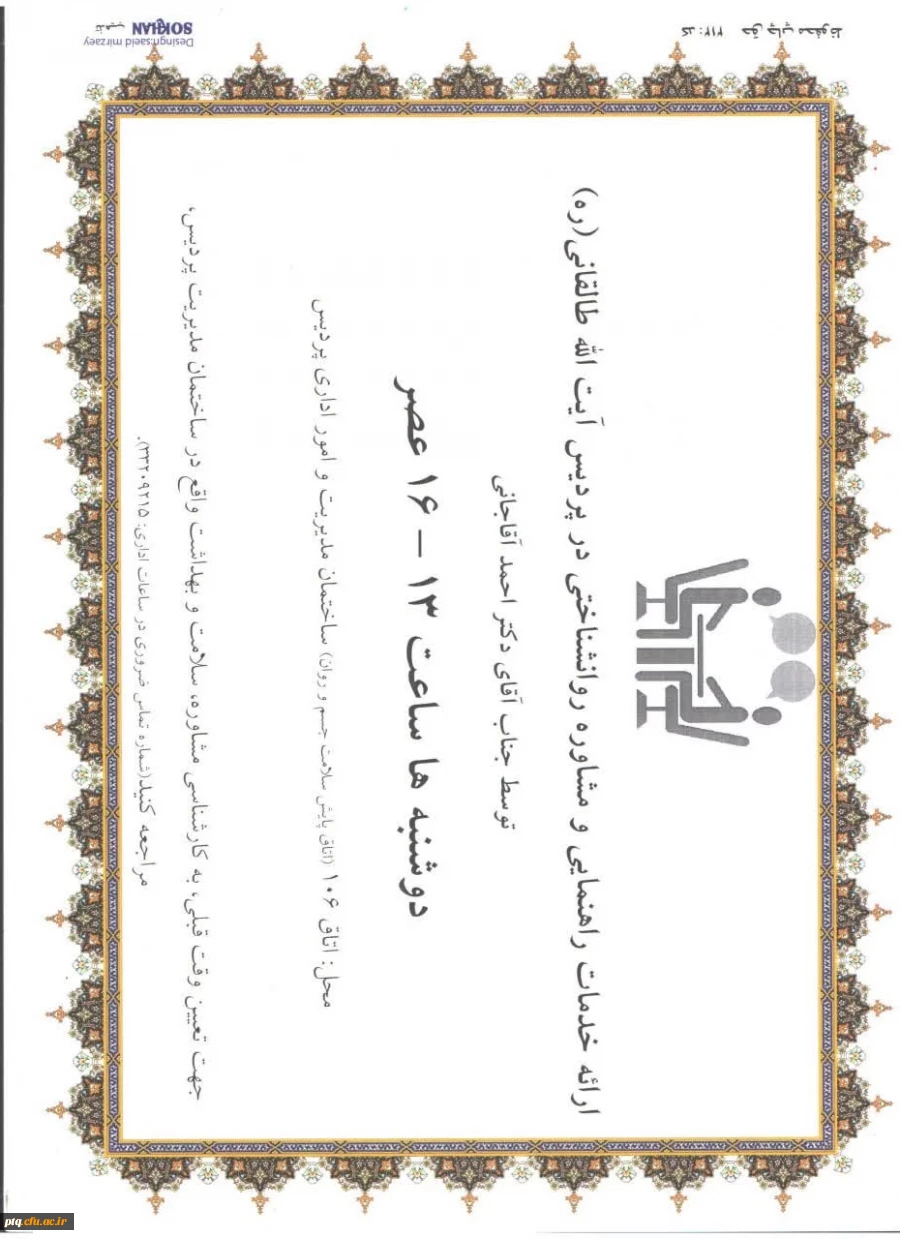 ارائه خدمات راهنمایی و مشاوره روانشناختی در پردیس آیت الله طالقانی(ره)
توسط جناب آقای دکتر احمد آقاجانی
دوشنبه ها ساعت ۱۳ – ۱۶ عصر
محل: اتاق ۱۰۶ (اتاق پایش سلامت جسم و روان) ساختمان مدیریت و امور اداری پردیس
جهت تعیین وقت قبلی، به کارشناسی مشاوره، سلامت و بهداشت واقع در ساختمان مدیریت پردیس،
مراجعه کنید(شماره تماس ضروری در ساعات اداری: ۳۳۲۰۹۲۱۵).
حق چاپ محفوظ کد: ۲۱۲
SOKHAN
Desingn:saeid mirzaey
ptq.cfu.ac.ir